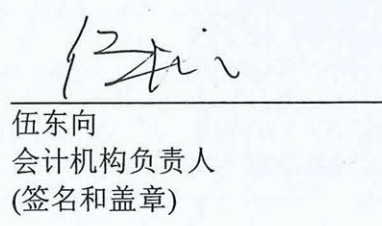 伍东向
会计机构负责人
(签名和盖章)